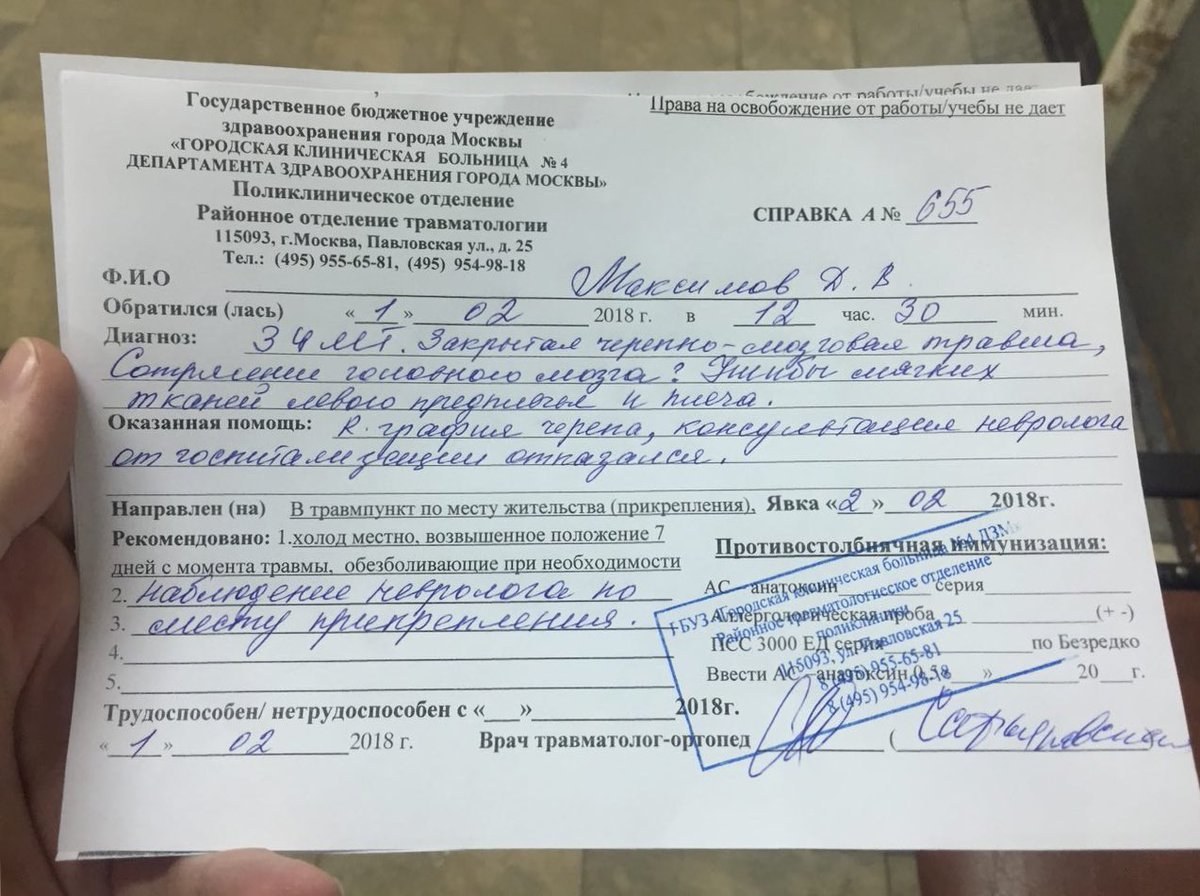 Государственное бюджетное учреждение
здравоохранения города Москвы
«ГОРОДСКАЯ КЛИНИЧЕСКАЯ БОЛЬНИЦА № 4
ДЕПАРТАМЕНТА ЗДРАВООХРАНЕНИЯ ГОРОДА МОСКВЫ»
Поликлиническое отделение
Районное отделение травматологии
115093, г.Москва, Павловская ул., д. 25
Тел.: (495) 955-65-81, (495) 954-98-18
от работы/учебы не дает
Права на освобождение от работы/учебы не дает
СПРАВКА А № 655
Ф.И.О Максимов Д. В.
Обратился (лась) «1» 02 2018 г. в 12 час. 30 мин.
Диагноз: ЗЧМТ. Закрытая черепно-мозговая травма,
Сотрясение головного мозга? Ушибы мягких
тканей левого предплечья и плеча.
Оказанная помощь: R. графия черепа, консультация невролога
от госпитализации отказался.
Направлен (на) В травмпункт по месту жительства (прикрепления), Явка «2» 02 2018г.
Рекомендовано: 1.холод местно, возвышенное положение 7
дней с момента травмы, обезболивающие при необходимости
2. наблюдение невролога по
3. месту прикрепления.
4.
5.
Противостолбнячная иммунизация:
АС – анатоксин серия
Аллергологическая проба (+ -)
ПСС 3000 ЕД серия по Безредко
Ввести АС – анатоксин 0,5 » 20 г.
ГБУЗ «Городская клиническая больница №4 ДЗМ»
Районное травматологическое отделение
поликлиники
115093, ул. Павловская 25
8 (495) 955-65-81
8 (495) 954-98-18
Трудоспособен/ нетрудоспособен с « » 2018г.
«1» 02 2018 г. Врач травматолог-ортопед (